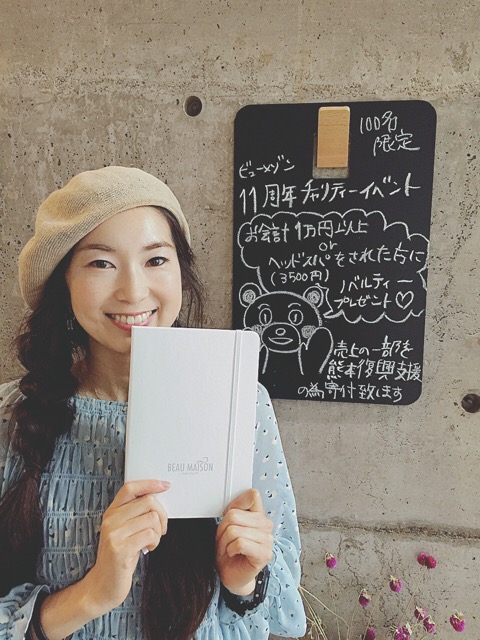 100名
限定
ビューメゾン
11周年チャリティーイベント
お会計1万円以上
or
ヘッドスパをされた方に
(3500円)
ノベルティー
プレゼント♡
売上の一部を
熊本復興支援
の為寄付致します
BEAU MAISON